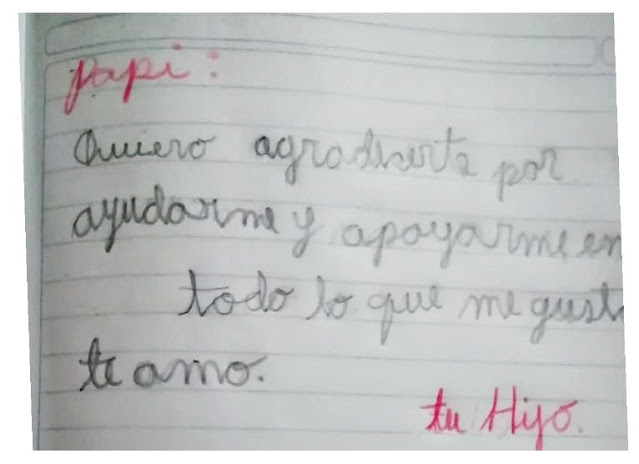 papi:
Quiero agradiserte por
ayudarme y apoyarme en
todo lo que me gust
te amo.
tu Hijo.